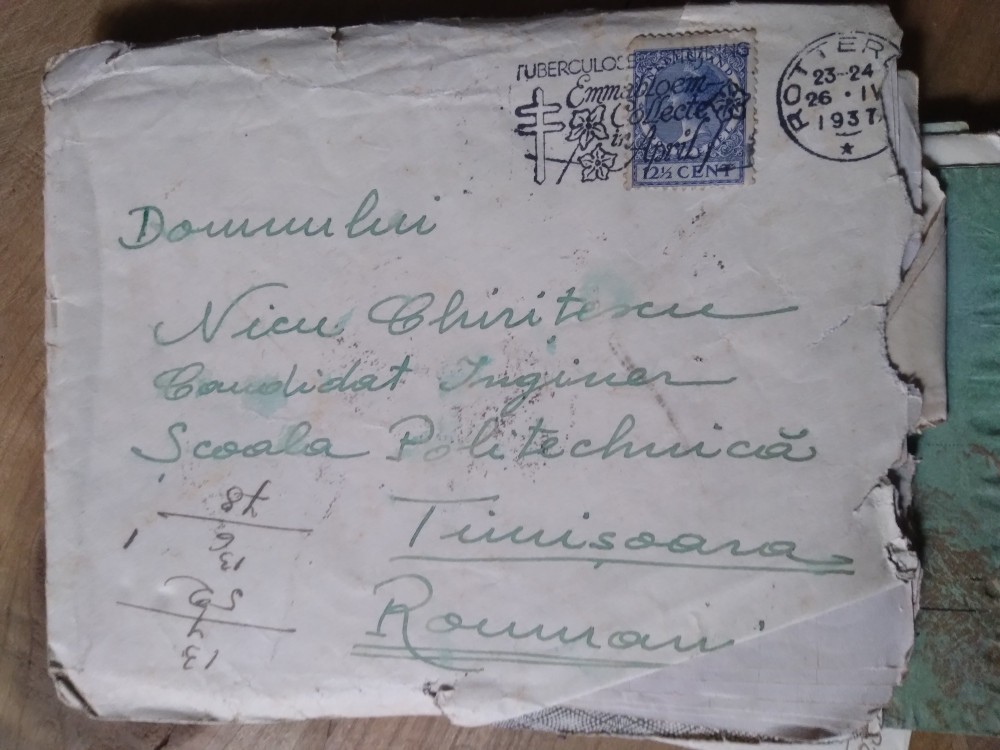 TUBERCULOSEBESTRIJDING
Emmabloem-
Collecte
in
April!
12½ CENT
ROTTER
23-24
26 · IV
1937
Domnului
Nicu Chiritescu
Candidat Inginer
Școala Politechnică
Timișoara
Roumani
13
4
52
13
6
78
1